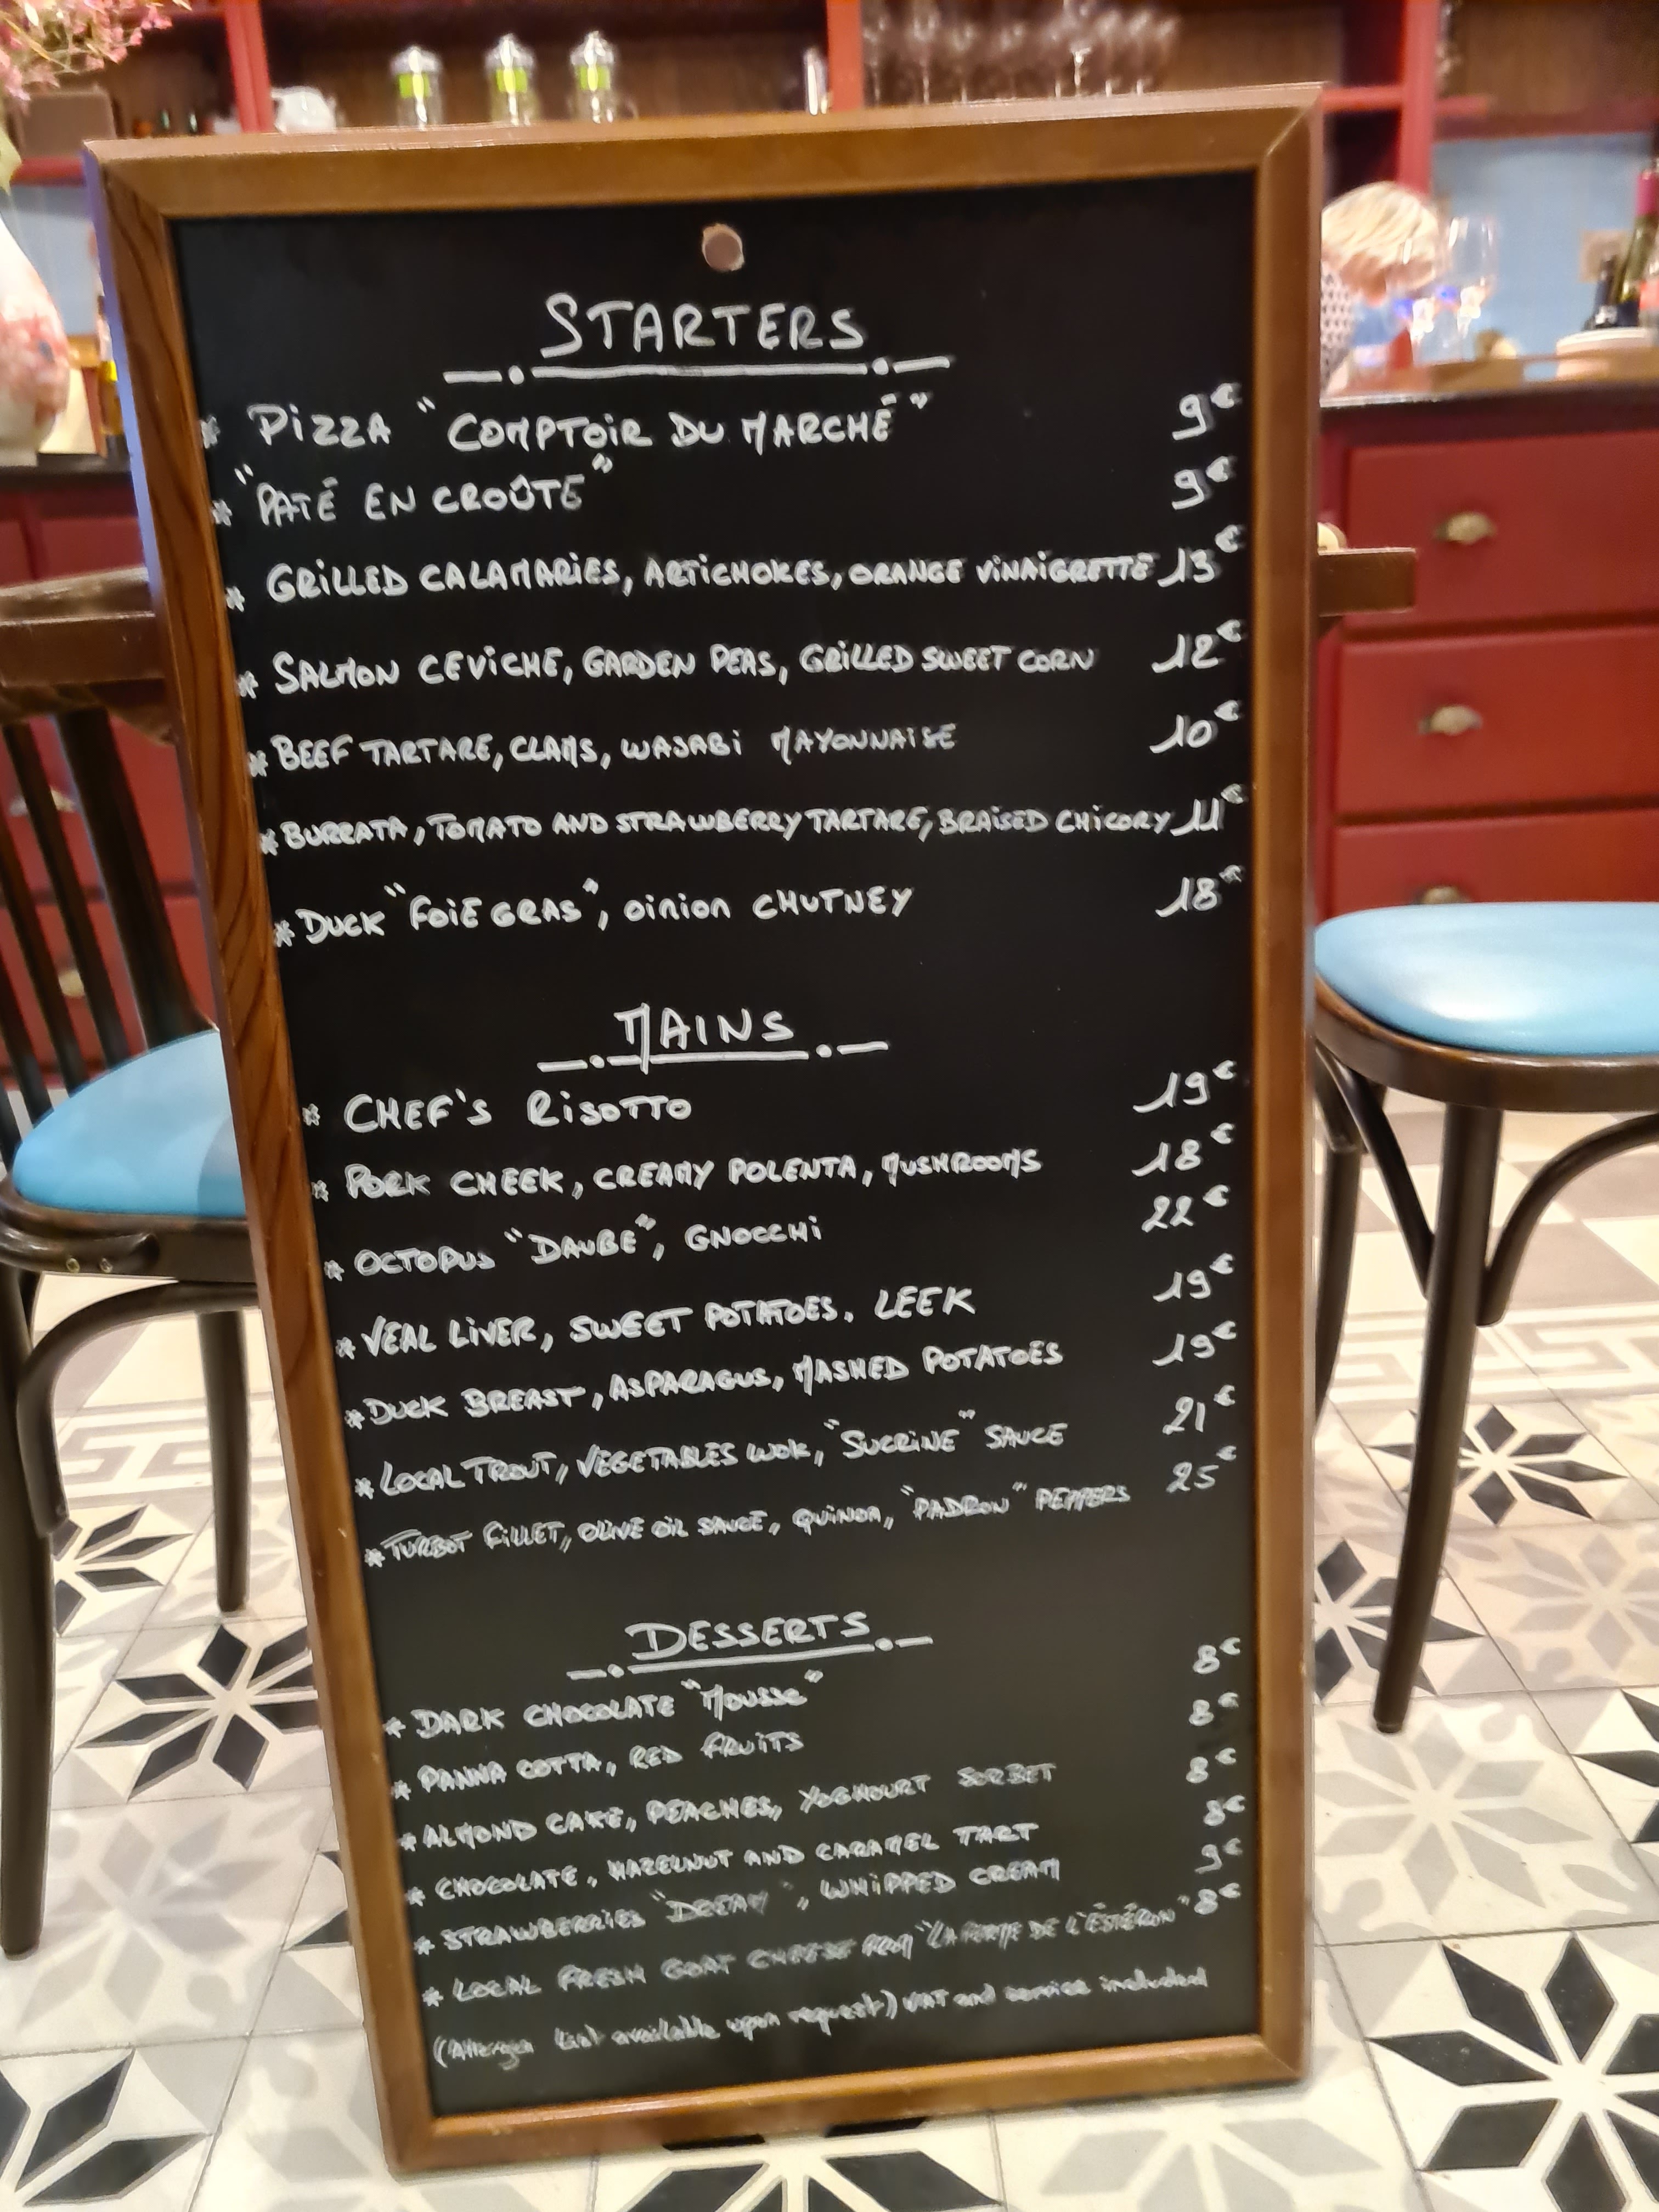 STARTERS
* PIZZA "COMPTOIR DU MARCHÉ" 9€
* "PATÉ EN CROÛTE" 9€
* GRILLED CALAMARIES, ARTICHOKES, ORANGE VINAIGRETTE 13€
* SALMON CEVICHE, GARDEN PEAS, GRILLED SWEET CORN 12€
* BEEF TARTARE, CLAMS, WASABI MAYONNAISE 10€
* BURRATA, TOMATO AND STRAWBERRY TARTARE, BRAISED CHICORY 11€
* DUCK "FOIE GRAS", oinion CHUTNEY 18€
MAINS
* CHEF'S RISOTTO 19€
* PORK CHEEK, CREAMY POLENTA, MUSHROOMS 18€
* OCTOPUS "DAUBE", GNOCCHI 22€
* VEAL LIVER, SWEET POTATOES, LEEK 19€
* DUCK BREAST, ASPARAGUS, MASHED POTATOES 19€
* LOCAL TROUT, VEGETABLES WOK, "SUCRINE" SAUCE 21€
* TURBOT FILLET, OLIVE OIL SAUCE, QUINOA, "PADRON" PEPPERS 25€
DESSERTS
* DARK CHOCOLATE "MOUSSE" 8€
* PANNA COTTA, RED FRUITS 8€
* ALMOND CAKE, PEACHES, YOGHOURT SORBET 8€
* CHOCOLATE, HAZELNUT AND CARAMEL TART 8€
* STRAWBERRIES "DREAM", WHIPPED CREAM 9€
* LOCAL FRESH GOAT CHEESE FROM "LA FERME DE L'ÉSTÉRON" 8€
(Allergen list available upon request) VAT and service included